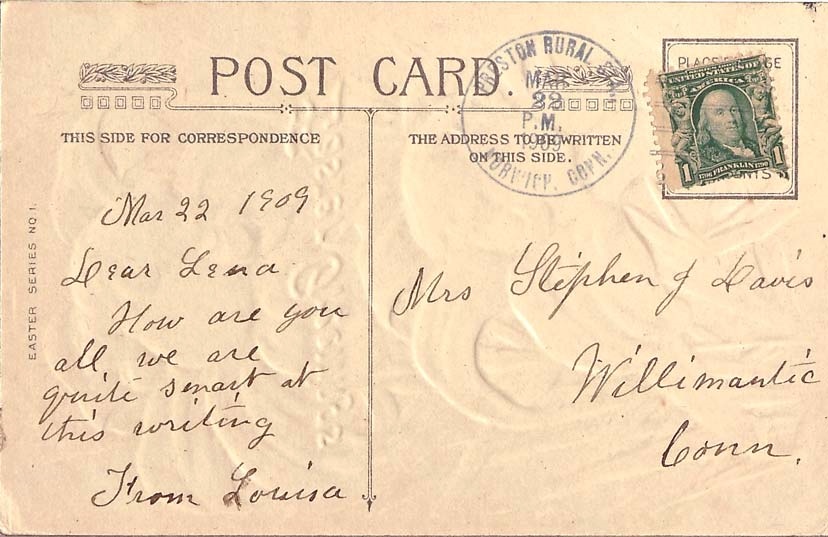 POST CARD.
THIS SIDE FOR CORRESPONDENCE
THE ADDRESS TO BE WRITTEN
ON THIS SIDE.
PRESTON RURAL STA.
MAR
22
P.M.
1909
NORWICH, CONN.
UNITED STATES OF
AMERICA
1 1
1706 FRANKLIN 1790
EASTER SERIES NO 1.
Mar 22 1909
Dear Lena
How are you
all, we are
quite smart at
this writing
From Louisa
Mrs Stephen J Davis
Willimantic
Conn.